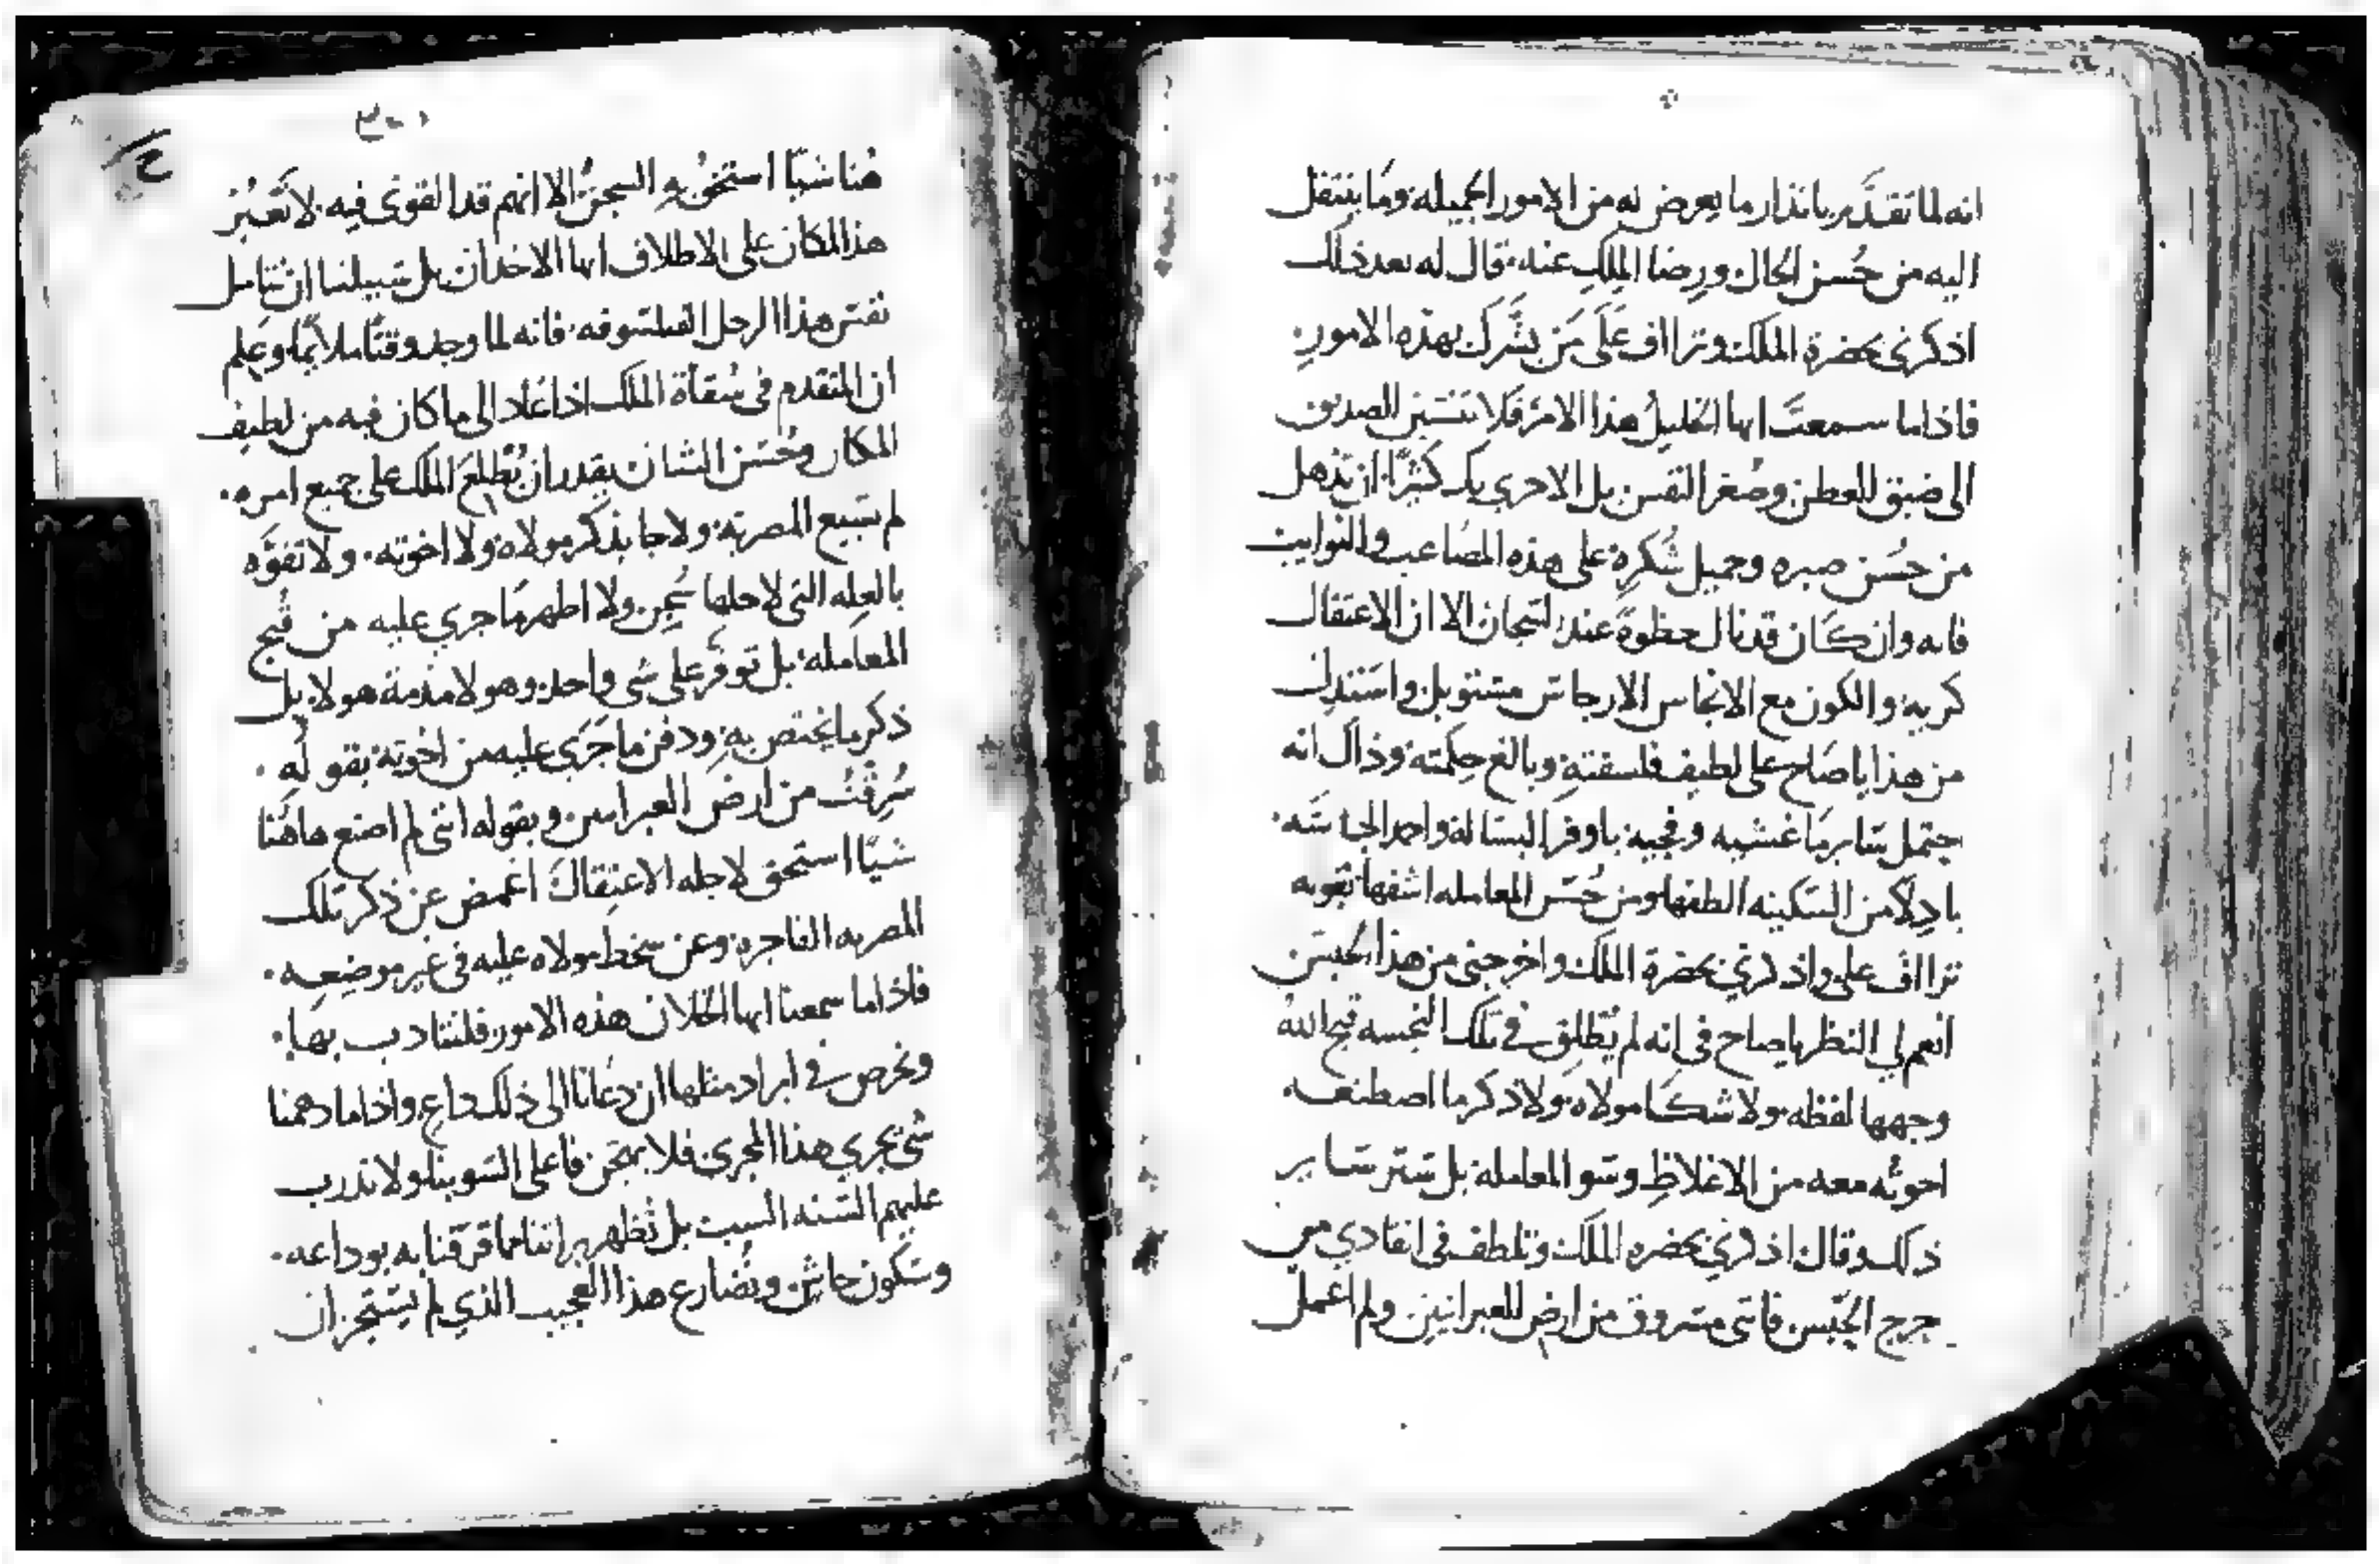 انه لما تقدَّم بانذار ما يعرض له من الامور الجميله وما ينتقل
اليه من حُسن الحال ورضا الملك عنه قال له بعد ذلك
اذكرني بحضرة الملك وتراف عَلَى مَن يشَرك بهذه الامور
فاذا ما سمعتَ ايها الخليلُ هذا الامر فلا تنسبن الصديق
الى ضيق العطن وصُغر النفس بل الاحري بك كثيرًا ان تذهل
من حُسن صبره وجميل شُكره على هذه المصاعب والنوايب
فانه وان كان قد نال حظوة عند السجان الا ان الاعتقال
كريه والكون مع الانجاس الارجاس مستوبل واستدل
من هذا يا صَاح على لطيف فلسفته وبالغ حِكمته وذاك انه
حتمل ساير ما غشيه وفجيه باوفر البسالة واحد الجاشه
باذلاً من السكينه الطفها ومن حُسن المعامله اشفها بقوله
تراأف علي واذكرني بحضرة الملك واخرجني من هذا الحبس
انعم لي النظر يا صاح في انه لم يُطلق في تلك النجسه قبح الله
وجهها لفظه ولا شكا مولاه ولا ذكر ما اصطنعه
اخوته معه من الاغلاظ وسو المعاملة بل ستر ساير
ذلك وقال اذكرني بحضره الملك وتلطف في انقادي من
حرج الحَبس فانني مسروق من ارض العبرانيين ولم اعمل
هُنا شيًا استحق به السجن الا انهم قد القوني فيه لا تَعبُرن
هذا المكان على الاطلاق ايها الاخدان بل سبيلنا ان نتامل
نفس هذا الرجل الفيلسوفه فانه لما وجد وقتًا ملايمًا وعَلم
ان المتقدم في سُقاة الملك اذا عاد الى ما كان فيه من لطيف
المكان وحُسن الشان يقدر ان يُطلعَ الملك على جميع امره
لم يسبع المصرية ولا جا بذكر مولاه ولا اخوته ولا تفوَّه
بالعِله التي لاجلها سُجِن ولا اظهر مَا جري عليه من قُبح
المعامله بل توفَّر على شي واحد وهو لا مذمة هولاء بل
ذكر ما يختص به ودفن ما جَرَى عليه من اخوته بقوله
سُرِقتُ من ارض العبرانيين وبقوله انني لم اصنع هاهُنا
شيًا استحق لاجله الاعتِقال اغمض عن ذكر تلك
المصريه الفاجره وعن سخط مولاه عليه في غير موضعه
فاذا ما سمعنا ايها الخلان هذه الامور فلنتادب بها
ونحرص في ايراد مثلها ان دعَانا الى ذلك داع واذا ما دهمنا
شي يجري هذا المجري فلا نمتحن فاعلى السو بنا ولا نذرب
عليهم السنه السب بل نُظهر براتنا مما قرفنا به بوداعه
وسكون جاش ونُضارع هذا العجيب الذي لم يستجز ان